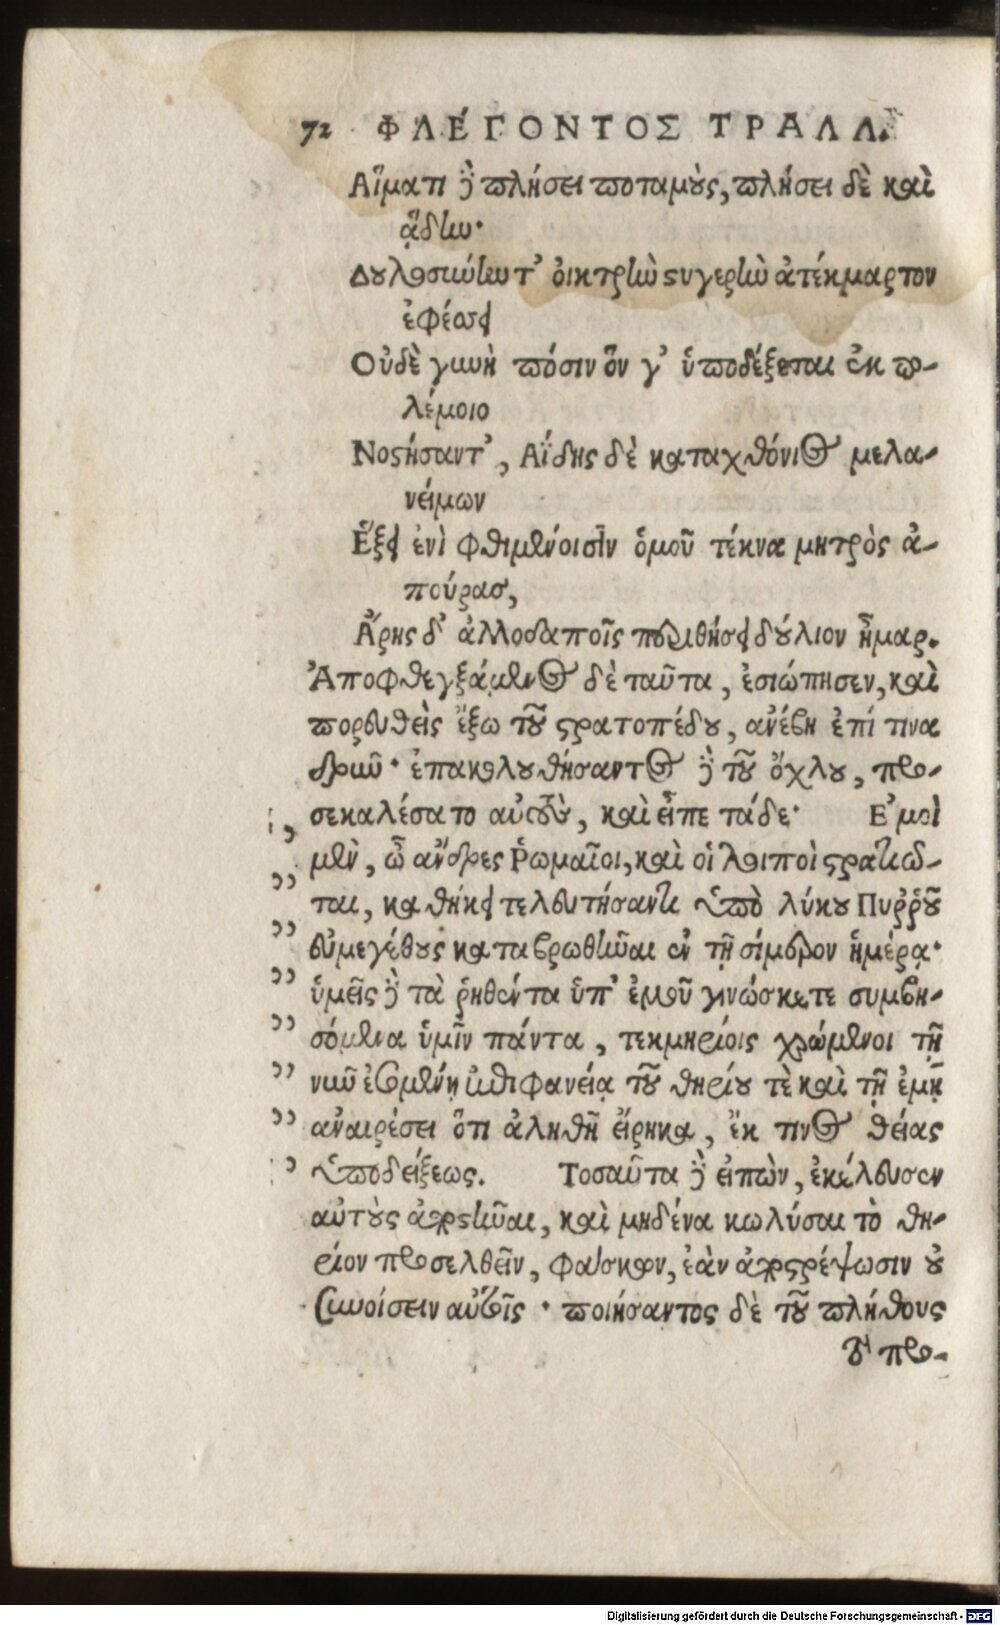 72 ΦΛΕΓΟΝΤΟΣ ΤΡΑΛΛ.
Αἵματι γὰρ πλήσει ποταμοὺς, πλήσει δὲ καὶ
ᾅδην·
Δουλοσύνην τ' οἰκτρὴν στυγερὴν ἀτέκμαρτον
ἐφέισει
Οὐδὲ γυνὴ πόσιν ὃν γ' ὑποδέξεται ἐκ πο-
λέμοιο
Νοστήσαντ', Αΐδης δὲ καταχθόνιος μελα-
νείμων
Ἕξει ἐνὶ φθιμένοισιν ὁμοῦ τέκνα μητρὸς ἀ-
πούρας,
Ἄρης δ' ἀλλοδαποῖς περιθήσει δούλιον ἦμαρ.
Ἀποφθεγξάμενος δὲ ταῦτα, ἐσιώπησεν, καὶ
πορευθεὶς ἔξω τοῦ στρατοπέδου, ἀνέβη ἐπί τινα
δρῦν· ἐπακολουθήσαντος γὰρ τοῦ ὄχλου, προ-
σεκαλέσατο αὐτοὺς, καὶ εἶπε τάδε· Ἐμοὶ
μὲν, ὦ ἄνδρες Ῥωμαῖοι, καὶ οἱ λοιποὶ στρατιῶ-
ται, καθήκει τελευτήσαντι ὑπὸ λύκου Πυῤῥοῦ
εὐμεγέθους καταβρωθῆναι ἐν τῇ σήμερον ἡμέρᾳ·
ὑμεῖς γὰρ τὰ ῥηθέντα ὑπ' ἐμοῦ γινώσκετε συμβη-
σόμενα ὑμῖν πάντα, τεκμηρίοις χρώμενοι τῇ
νῦν ἐσομένῃ ἐπιφανείᾳ τοῦ θηρίου τὲ καὶ τῇ ἐμῇ
ἀναιρέσει ὅτι ἀληθῆ εἴρηκα, ἔκ τινος θείας
ὑποδείξεως. Τοσαῦτα γὰρ εἰπὼν, ἐκέλευσεν
αὐτοὺς ἀποστῆναι, καὶ μηδένα κωλύσαι τὸ θη-
ρίον προσελθεῖν, φάσκων, ἐὰν ἀποστρέψωσιν οὐ
συνοίσειν αὐτοῖς· ποιήσαντος δὲ τοῦ πλήθους
τὸ προ-
Digitalisierung gefördert durch die Deutsche Forschungsgemeinschaft - DFG